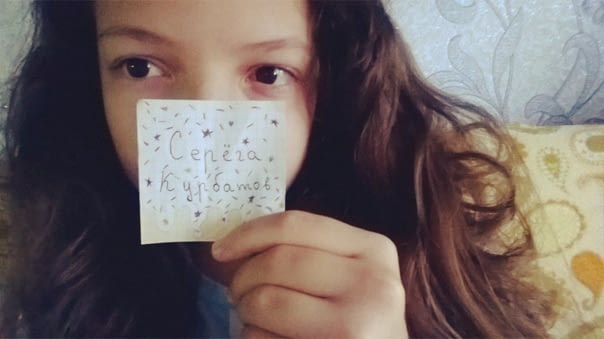 Серёга
Курбатов